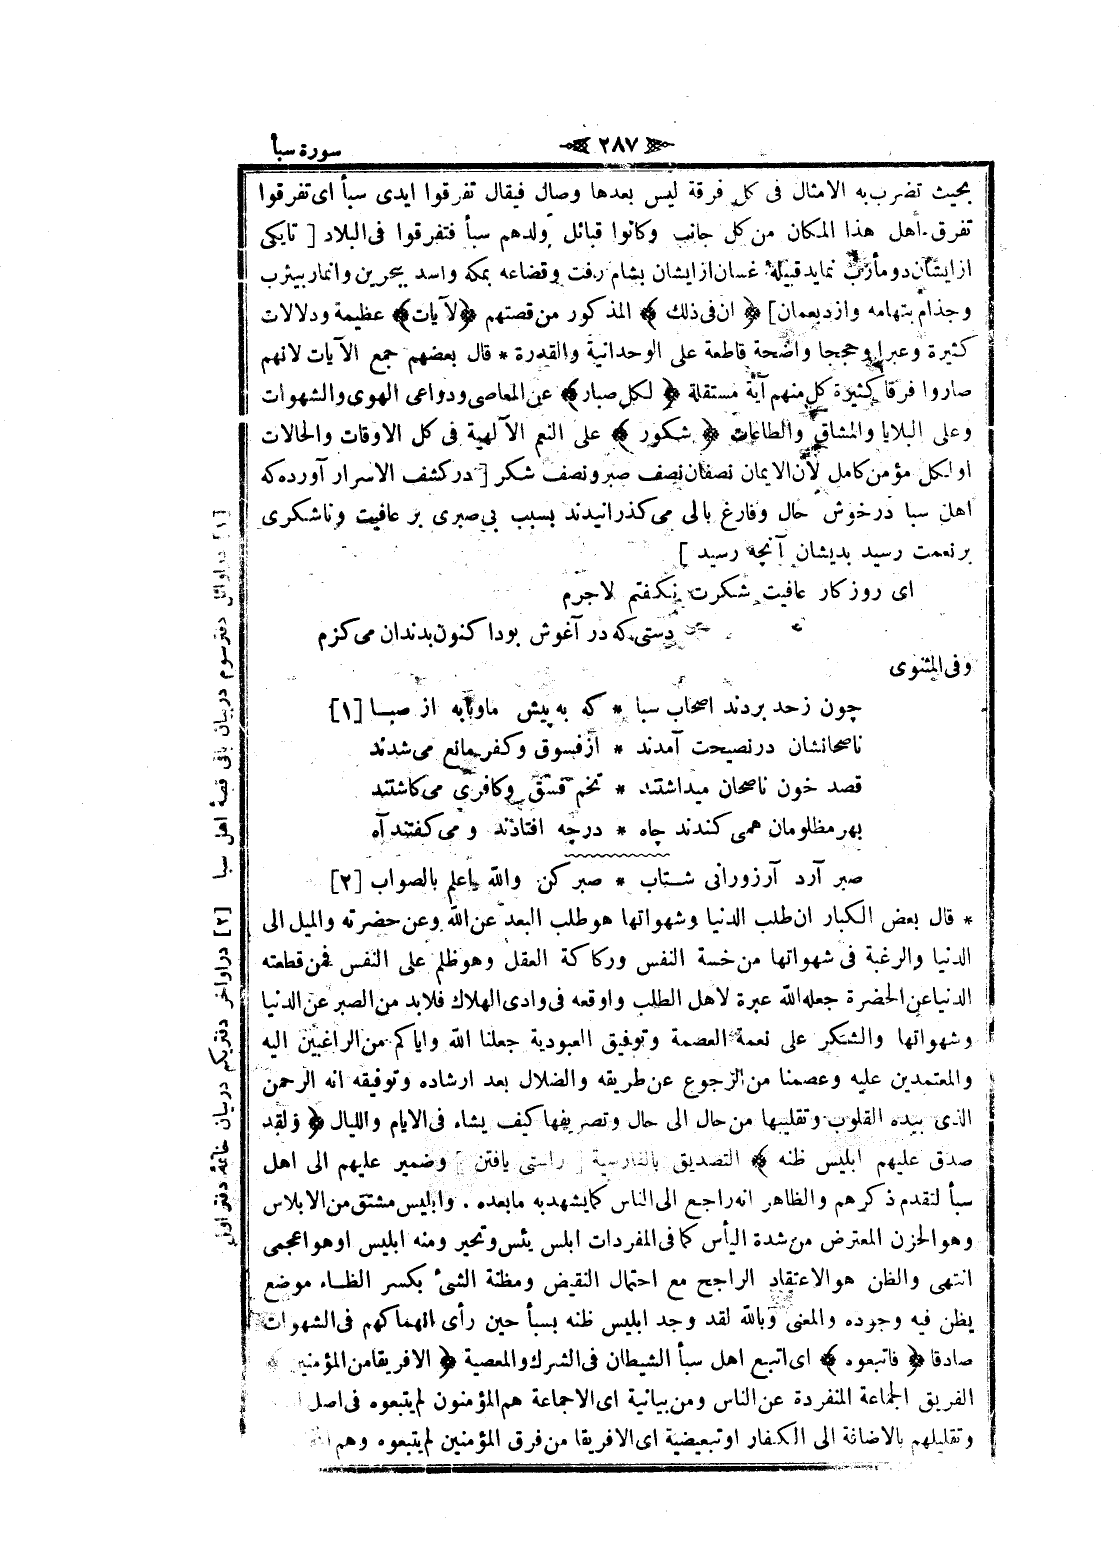 سورة سبأ
٢٨٧
بحيث تضرب به الامثال فى كل فرقة ليس بعدها وصال فيقال تفرقوا ايدى سبأ اى تفرقوا
تفرق اهل هذا المكان من كل جانب وكانوا قبائل ولدهم سبأ فتفرقوا فى البلاد [ تايكى
ازايشان دو مأرب نمايد قبيلهٔ غسان ازايشان بشام رفت وقضاعه بمكه واسد ببحرين وانمار بيثرب
وجذام بتهامه وازد بعمان] ﴿ ان فى ذلك ﴾ المذكور من قصتهم ﴿لآيات﴾ عظيمة ودلالات
كثيرة وعبرا وحججا واضحة قاطعة على الوحدانية والقدرة * قال بعضهم جمع الآيات لانهم
صاروا فرقا كثيرة كل منهم آية مستقلة ﴿ لكل صبار﴾ عن المعاصى ودواعى الهوى والشهوات
وعلى البلايا والمشاق والطاعات ﴿ شكور ﴾ على النعم الآلهية فى كل الاوقات والحالات
او لكل مؤمن كامل لأن الايمان نصفان نصف صبر ونصف شكر [ در كشف الاسرار آورده كه
اهل سبا در خوش حال وفارغ بالى مى كذرانيدند بسبب بى صبرى بر عافيت وناشكرى
بر نعمت رسيد بديشان آنچه رسيد ]
اى روزكار عافيت شكرت نكفتم لاجرم
دستى كه در آغوش بود اكنون بدندان مى كزم
وفى المثنوى
چون زحد بردند اصحاب سبا * كه به پيش ماوبا به از صبا [١]
ناصحانشان در نصيحت آمدند * از فسوق وكفر مانع مى شدند
قصد خون ناصحان ميداشتند * تخم فسق وكافرى مى كاشتند
بهر مظلومان همى كندند چاه * در چه افتادند و مى كفتند آه
صبر آرد آرزورانى شتاب * صبر كن والله اعلم بالصواب [٢]
* قال بعض الكبار ان طلب الدنيا وشهواتها هو طلب البعد عن الله وعن حضرته والميل الى
الدنيا والرغبة فى شهواتها من خسة النفس وركاكة العقل وهو ظلم على النفس فمن قطعته
الدنيا عن الحضرة جعله الله عبرة لاهل الطلب واوقعه فى وادى الهلاك فلابد من الصبر عن الدنيا
وشهواتها والشكر على نعمة العصمة وتوفيق العبودية جعلنا الله واياكم من الراغبين اليه
والمعتمدين عليه وعصمنا من الرجوع عن طريقه والضلال بعد ارشاده وتوفيقه انه الرحمن
الذى بيده القلوب وتقليبها من حال الى حال وتصريفها كيف يشاء فى الايام والليال ﴿ ولقد
صدق عليهم ابليس ظنه ﴾ التصديق بالفارسية [ راستى يافتن ] وضمير عليهم الى اهل
سبأ لتقدم ذكرهم والظاهر انه راجع الى الناس كما يشهد به مابعده . وابليس مشتق من الابلاس
وهو الحزن المعترض من شدة اليأس كما فى المفردات ابلس يئس وتحير ومنه ابليس او هو اعجمى
انتهى والظن هو الاعتقاد الراجح مع احتمال النقيض ومظنة الشئ بكسر الظاء موضع
يظن فيه وجوده والمعنى وبالله لقد وجد ابليس ظنه بسبأ حين رأى انهماكهم فى الشهوات
صادقا ﴿ فاتبعوه ﴾ اى اتبع اهل سبأ الشيطان فى الشرك والمعصية ﴿ الا فريقا من المؤمنين ﴾
الفريق الجماعة المنفردة عن الناس ومن بيانية اى الاجماعة هم المؤمنون لم يتبعوه فى اصل
وتقليلهم بالاضافة الى الكفار او تبعيضية اى الافريقا من فرق المؤمنين لم يتبعوه وهم
[١] در اوائل دفتر سوم در بيان باقى قصۀ اهل سبا [٢] در اواخر دفتر يكم در بيان خاتمۀ دفتر اول